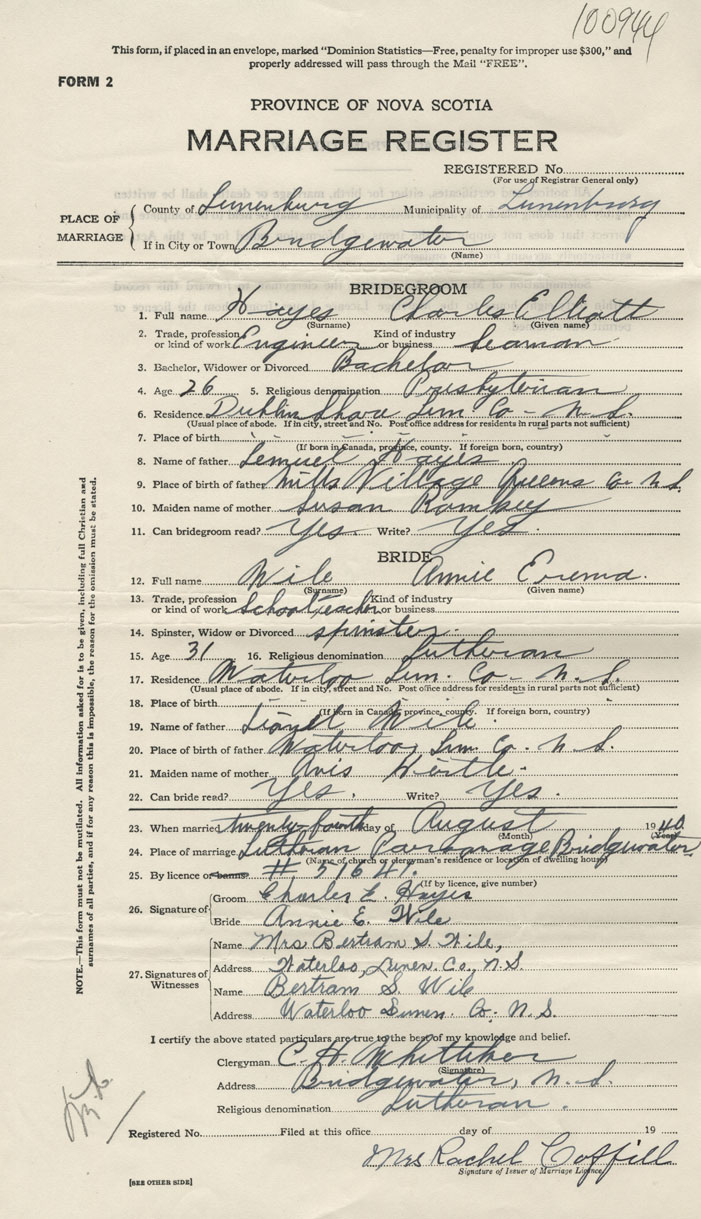 100944
This form, if placed in an envelope, marked "Dominion Statistics—Free, penalty for improper use $300," and
properly addressed will pass through the Mail "FREE".
FORM 2
PROVINCE OF NOVA SCOTIA
MARRIAGE REGISTER
REGISTERED No.
(For use of Registrar General only)
PLACE OF MARRIAGE
County of Lunenburg Municipality of Lunenburg
If in City or Town Bridgewater
(Name)
BRIDEGROOM
1. Full name Hayes Charles Elliott
(Surname) (Given name)
2. Trade, profession or kind of work Engineer Kind of industry or business Seaman
3. Bachelor, Widower or Divorced Bachelor
4. Age 26 5. Religious denomination Presbyterian
6. Residence Dublin Shore Lun Co - N.S.
(Usual place of abode. If in city, street and No. Post office address for residents in rural parts not sufficient)
7. Place of birth
(If born in Canada, province, county. If foreign born, country)
8. Name of father Lemuel Hayes
9. Place of birth of father Mills Village Queens Co N.S.
10. Maiden name of mother Susan Romkey
11. Can bridegroom read? Yes. Write? Yes.
BRIDE
12. Full name Wile Annie Erema.
(Surname) (Given name)
13. Trade, profession or kind of work School teacher Kind of industry or business
14. Spinster, Widow or Divorced spinster.
15. Age 31 16. Religious denomination Lutheran
17. Residence Waterloo Lun. Co - N.S.
(Usual place of abode. If in city, street and No. Post office address for residents in rural parts not sufficient)
18. Place of birth
(If born in Canada, province, county. If foreign born, country)
19. Name of father Lionel Wile.
20. Place of birth of father Waterloo, Lun. Co. N.S.
21. Maiden name of mother Avis Hirtle.
22. Can bride read? Yes. Write? Yes.
23. When married twenty-fourth day of August 1940
(Month) (Year)
24. Place of marriage Lutheran Parsonage Bridgewater
(Name of church or clergyman's residence or location of dwelling house)
25. By licence or banns # 51641.
(If by licence, give number)
26. Signature of
Groom Charles E. Hayes
Bride Annie E. Wile
27. Signatures of Witnesses
Name Mrs. Bertram S. Wile,
Address Waterloo, Lunen. Co., N.S.
Name Bertram S. Wile
Address Waterloo Lunen. Co. N.S.
I certify the above stated particulars are true to the best of my knowledge and belief.
Clergyman C. H. Whitteker
(Signature)
Address Bridgewater, N.S.
Religious denomination Lutheran.
Registered No. Filed at this office day of 19
Mrs Rachel Coffill
Signature of Issuer of Marriage Licence
[SEE OTHER SIDE]
NOTE.—This form must not be mutilated. All information asked for is to be given, including full Christian and
surnames of all parties, and if for any reason this is impossible, the reason for the omission must be stated.